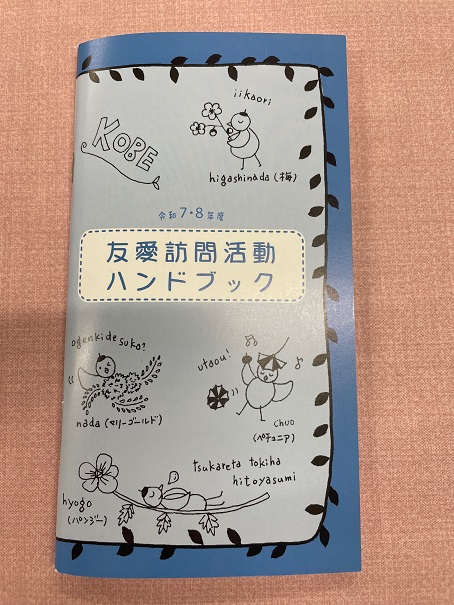 iikaori
KOBE
higashinada (梅)
令和7・8年度
友愛訪問活動
ハンドブック
ogenkidesuka?
utaou!
nada (マリーゴールド)
chuo
(ペチュニア)
tsukareta tokiha
hitoyasumi
hyogo
(パンジー)